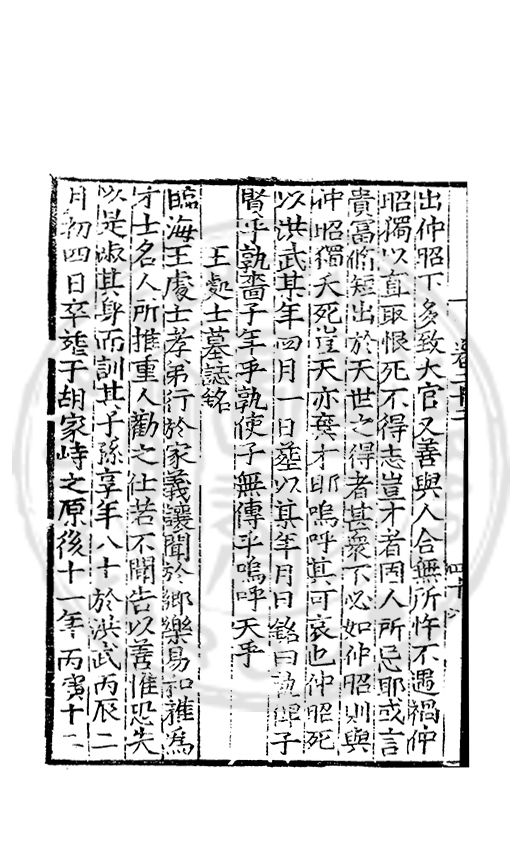 出仲昭下多致大官又善與人合無所忤不遇禍仲
昭獨以直取恨死不得志豈才者固人所忌耶或言
貴富脩短出於天世之得者甚衆不必如仲昭則與
仲昭獨夭死豈天亦棄才耶嗚呼其可哀也仲昭死
以洪武某年四月一日塟以某年月日銘曰孰俾子
賢乎孰嗇子年乎孰使子無傳乎嗚呼天乎
王處士墓誌銘
臨海王處士孝弟行於家義讓聞於鄉樂易和雅為
才士名人所推重人勸之仕若不聞告以善惟恐失
以是淑其身而訓其子孫享年八十於洪武丙辰二
月初四日卒塟于胡家峙之原後十一年丙寅十二
卷二十二